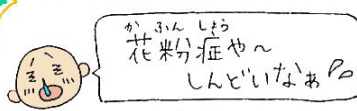 かふんしょう
花粉症や～
しんどいなぁ